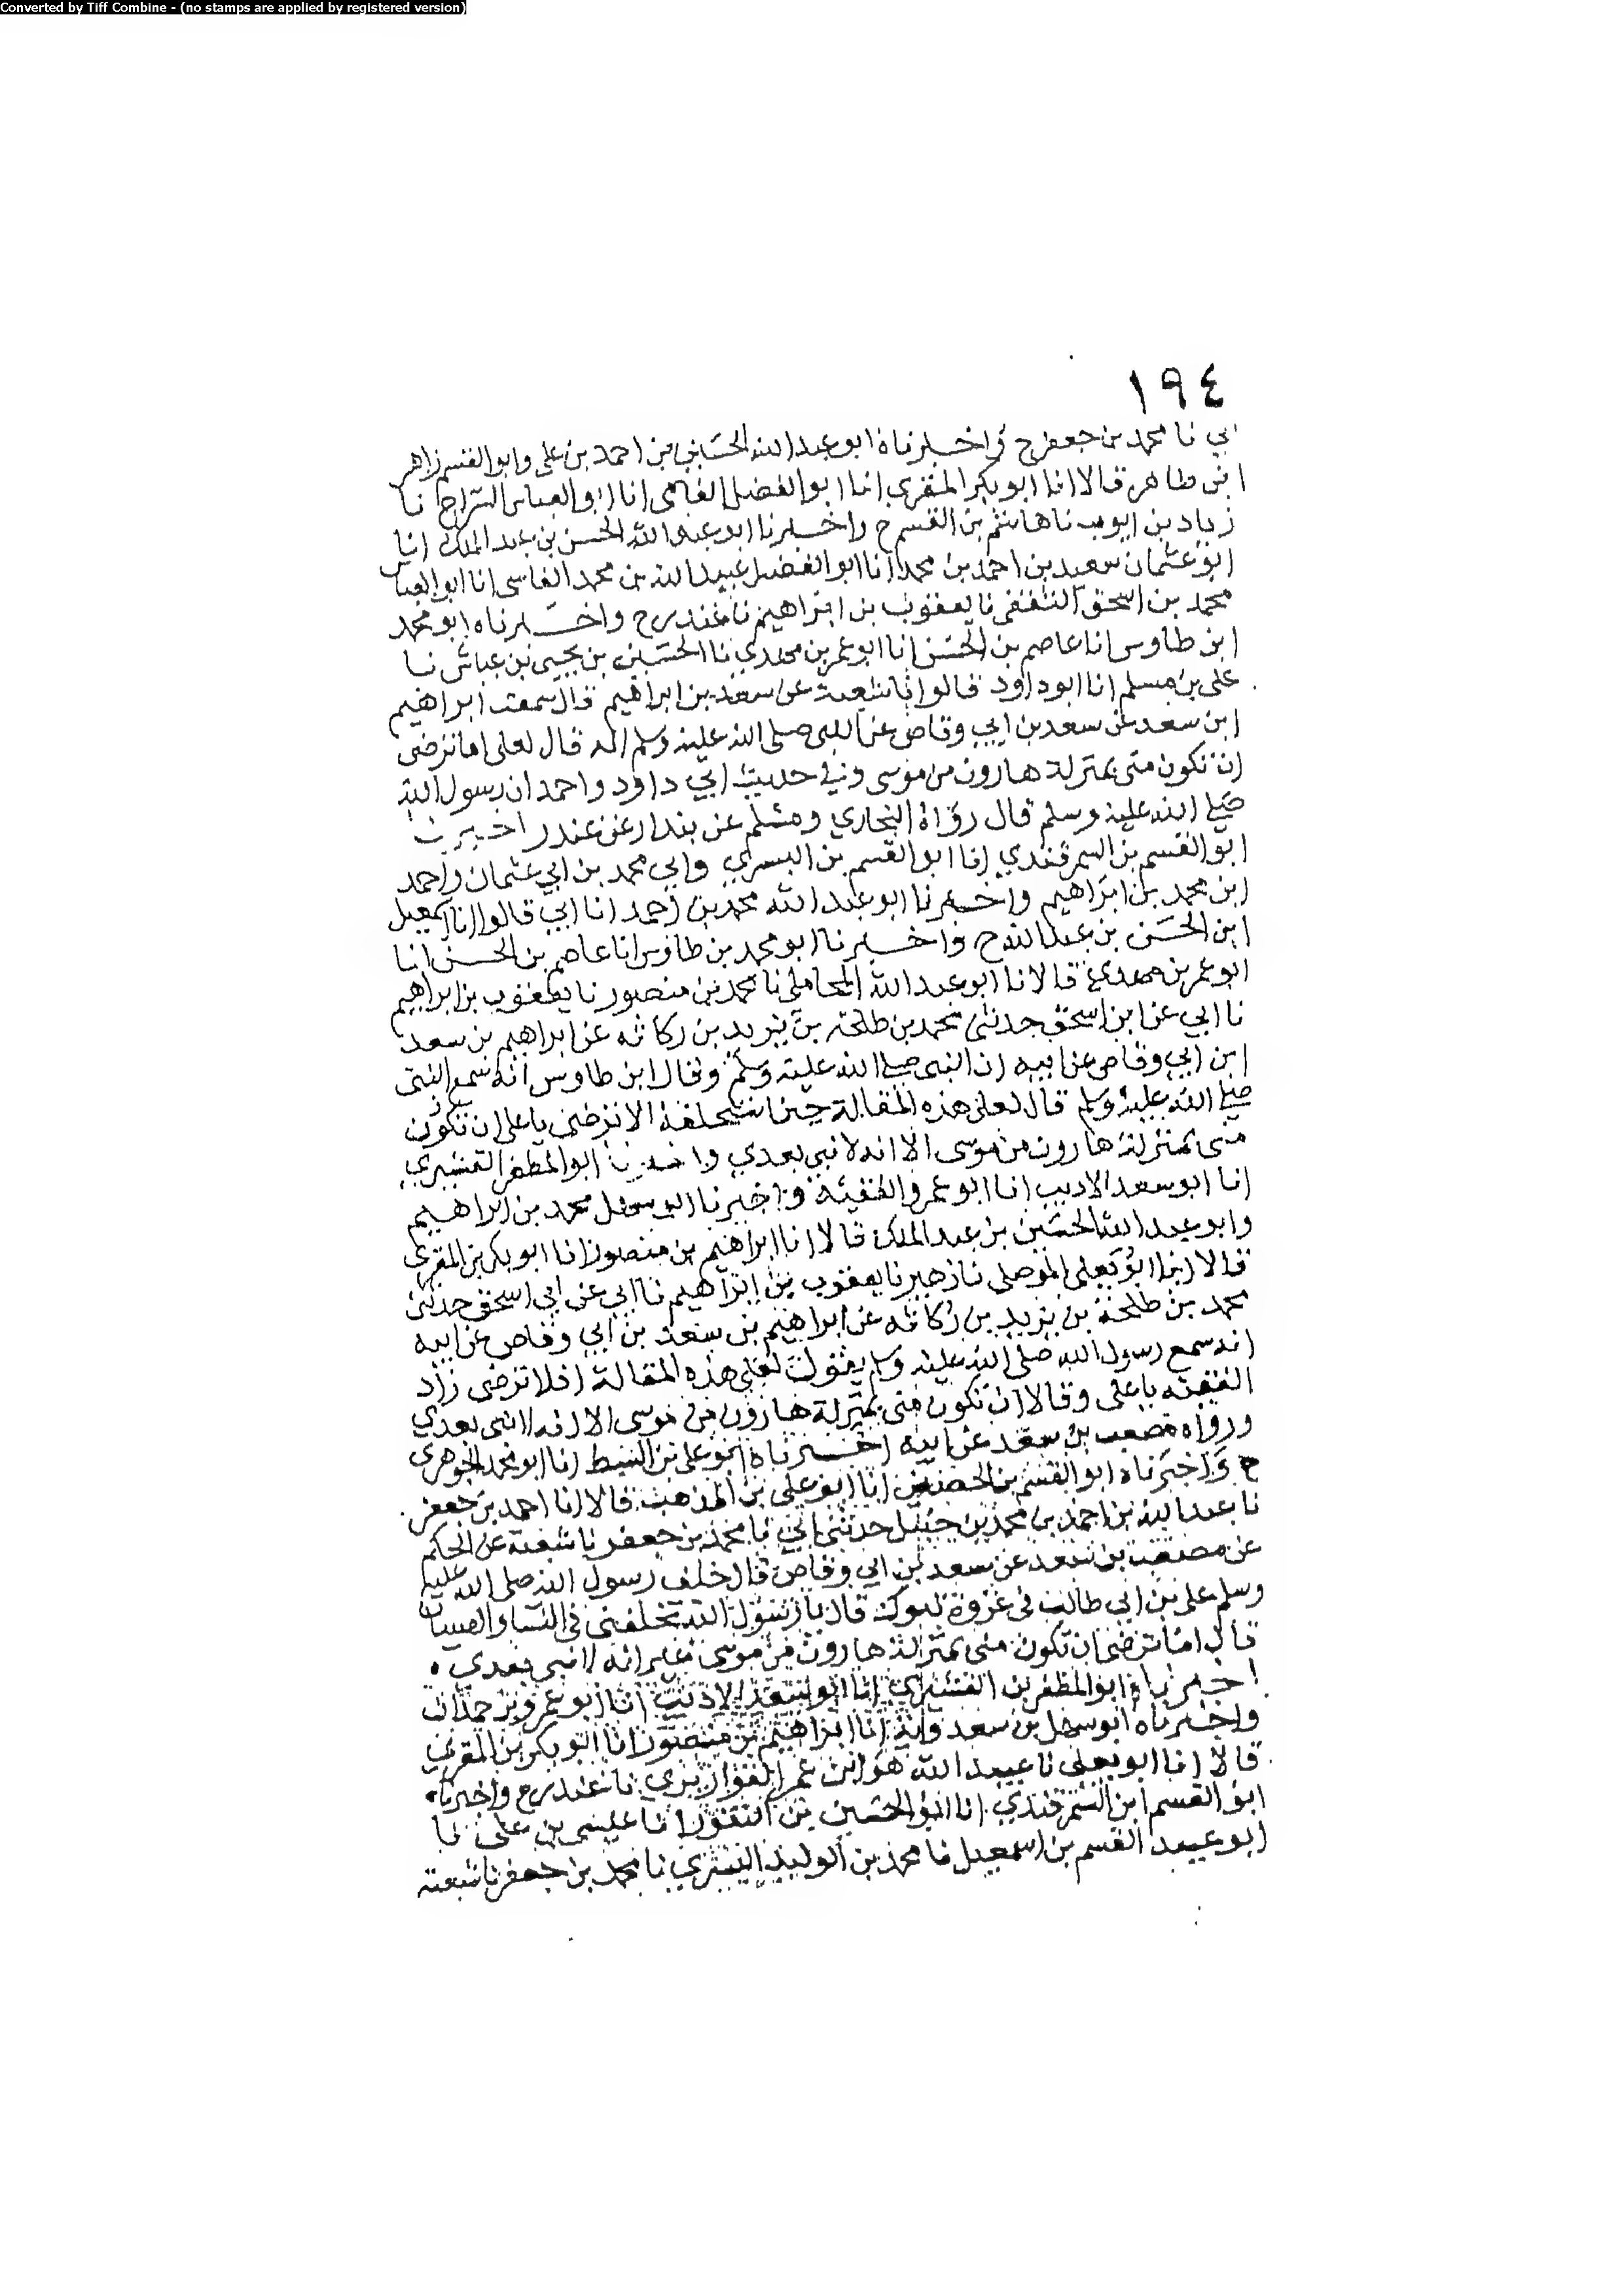 Converted by Tiff Combine - (no stamps are applied by registered version)
١٩٤
ابي نا محمد بن جعفر ح واخبرناه ابو عبد الله الحسين بن احمد بن علي وابو القسم زاهر
ابن طاهر قالا انا ابو بكر المقري انا ابو الفضل الفامي انا ابو العباس السراج نا
زياد بن ايوب نا هاشم بن القسم ح واخبرنا ابو عبد الله الحسن بن عبد الملك انا
ابو عثمان سعيد بن احمد بن محمد انا ابو الفضل عبيد الله بن محمد الفامي انا ابو العباس
محمد بن اسحق الثقفي نا يعقوب بن ابراهيم نا غندر ح واخبرناه ابو محمد
ابن طاوس انا عاصم بن الحسن انا ابو عمر بن مهدي نا الحسين بن يحيى بن عياش نا
علي بن مسلم انا ابو داود قالوا نا شعبة عن سعد بن ابراهيم قال سمعت ابراهيم
ابن سعد عن سعد بن ابي وقاص عن النبي صلى الله عليه وسلم انه قال لعلي اما ترضى
ان تكون مني بمنزلة هارون من موسى وفي حديث ابي داود واحمد ان رسول الله
صلى الله عليه وسلم قال رواه البخاري ومسلم عن بندار عن غندر اخبرنا
ابو القسم بن السمرقندي انا ابو القسم بن البسري وابي محمد بن ابي عثمان واحمد
ابن محمد بن ابراهيم واخبرنا ابو عبد الله محمد بن احمد انا ابي قالوا انا اسمعيل
ابن الحسن بن عبد الله ح واخبرنا ابو محمد بن طاوس انا عاصم بن الحسن انا
ابو عمر بن مهدي قالا نا ابو عبد الله المحاملي نا محمد بن منصور نا يعقوب بن ابراهيم
نا ابي عن ابن اسحق حدثني محمد بن طلحة بن يزيد بن ركانه عن ابراهيم بن سعد
ابن ابي وقاص عن ابيه ان النبي صلى الله عليه وسلم وقال ابن طاوس انه سمع النبي
صلى الله عليه وسلم قال لعلي هذه المقالة حين استخلفه الا ترضى يا علي ان تكون
مني بمنزلة هارون من موسى الا انه لا نبي بعدي واخبرنا ابو المظفر القشيري
انا ابو سعد الاديب انا ابو عمرو الفقيه واخبرنا ابو سهل محمد بن ابراهيم
وابو عبد الله الحسين بن عبد الملك قالا انا ابراهيم بن منصور انا ابو بكر بن المقري
قالا انا ابو يعلى الموصلي نا زهير نا يعقوب بن ابراهيم نا ابي عن ابي اسحق حدثني
محمد بن طلحة بن يزيد بن ركانه عن ابراهيم بن سعد بن ابي وقاص عن ابيه
انه سمع رسول الله صلى الله عليه وسلم يقول لعلي هذه المقالة افلا ترضى زاد
الفقيه يا علي وقالا ان تكون مني بمنزلة هارون من موسى الا انه لا نبي بعدي
ورواه مصعب بن سعد عن ابيه اخبرناه ابو علي بن السبط انا ابو محمد الجوهري
ح واخبرناه ابو القسم بن الحصين انا ابو علي بن المذهب قالا انا احمد بن جعفر
نا عبد الله بن احمد بن محمد بن حنبل حدثني ابي نا محمد بن جعفر نا شعبة عن الحكم
عن مصعب بن سعد عن سعد بن ابي وقاص قال خلف رسول الله صلى الله عليه
وسلم علي بن ابي طالب في غزوة تبوك قال يا رسول الله تخلفني في النسا والصبيان
قال اما ترضى ان تكون مني بمنزلة هارون من موسى غير انه لا نبي بعدي .
اخبرناه ابو المظفر بن القشيري انا ابو سعد الاديب انا ابو عمرو بن حمدان
واخبرناه ابو سهل بن سعدويه انا ابراهيم بن منصور انا ابو بكر بن المقري
قالا انا ابو يعلى نا عبيد الله هو ابن عمر القواريري نا غندر ح واخبرناه
ابو القسم ابن السمرقندي انا ابو الحسين بن النقور انا عيسى بن علي نا
ابو عبيد القسم بن اسمعيل نا محمد بن الوليد البسري نا محمد بن جعفر نا شعبة